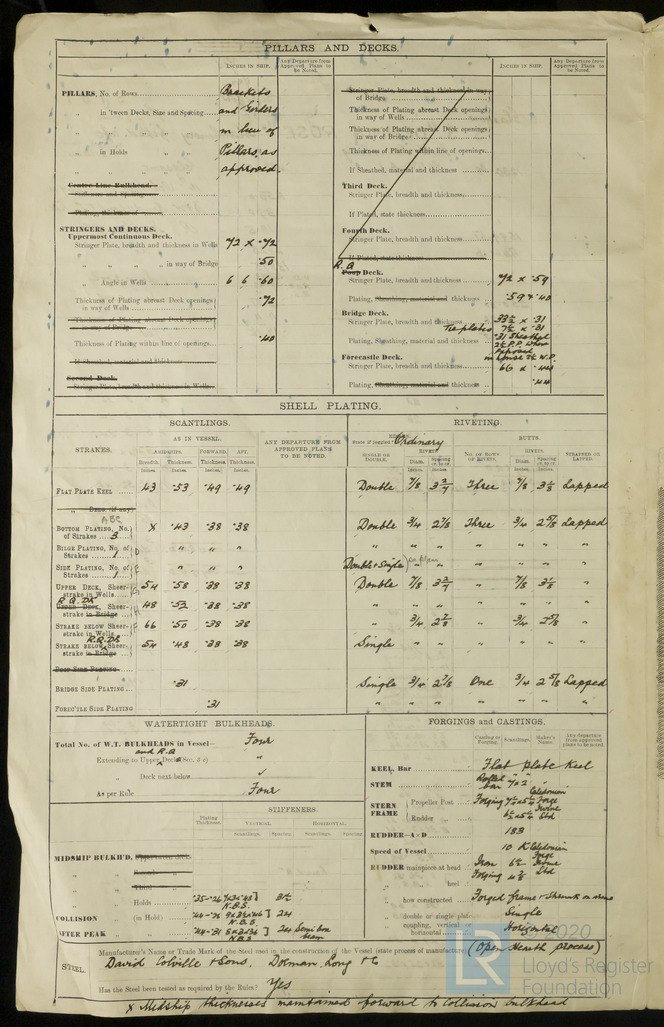 PILLARS AND DECKS.
INCHES IN SHIP.
Any Departure from Approved Plans to be Noted.
PILLARS, No. of Rows Brackets
" in 'tween Decks, Size and Spacing and Girders
" " " in lieu of
" in Holds " " Pillars, as
" " " approved.
Centre Line Bulkhead.
Stiffeners and Spacing
Plating, thickness of
STRINGERS AND DECKS.
Uppermost Continuous Deck.
Stringer Plate, breadth and thickness in Wells 72 x .72
" " " in way of Bridge .50
" Angle in Wells 6 6 .60
Thickness of Plating abreast Deck openings in way of Wells .72
Thickness of Plating abreast Deck openings in way of Bridge
Thickness of Plating within line of openings .40
If Sheathed, material and thickness
Second Deck.
Stringer Plate, breadth and thickness in Wells
INCHES IN SHIP.
Any Departure from Approved Plans to be Noted.
Stringer Plate, breadth and thickness in way of Bridge
Thickness of Plating abreast Deck openings in way of Wells
Thickness of Plating abreast Deck openings in way of Bridge
Thickness of Plating within line of openings
If Sheathed, material and thickness
Third Deck.
Stringer Plate, breadth and thickness
If Plated, state thickness
Fourth Deck.
Stringer Plate, breadth and thickness
If Plated, state thickness
R.Q.
Poop Deck.
Stringer Plate, breadth and thickness 72 x .59
Plating, Sheathing, material and thickness .59 & .40
Bridge Deck.
Stringer Plate, breadth and thickness 33½ x .31
Tie plates 7½ x .31
Plating, Sheathing, material and thickness .31 Sheathed
2½ P.P. where
exposed
Forecastle Deck. in house 2½ W.P.
Stringer Plate, breadth and thickness 66 x .44
Plating, Sheathing, material and thickness .44
SHELL PLATING.
SCANTLINGS.
RIVETING.
STRAKES.
AS IN VESSEL.
ANY DEPARTURE FROM APPROVED PLANS TO BE NOTED.
AMIDSHIPS. FORWARD. AFT.
Breadth. Thickness. Thickness. Thickness.
Inches. Inches. Inches. Inches.
State if joggled Ordinary
BUTTS.
SINGLE OR DOUBLE.
RIVETS.
Diam. Spacing cr. to cr.
NO. OF ROWS OF RIVETS.
RIVETS.
Diam. Spacing cr. to cr.
STRAPPED OR LAPPED.
FLAT PLATE KEEL 43 .53 .49 .49 Double 7/8 3¾ Three 7/8 3⅛ Lapped
" DBLG. (if any)
ABC
BOTTOM PLATING, No. of Strakes 3 x .43 .38 .38 Double 3/4 2⅞ Three 3/4 2⅝ Lapped
BILGE PLATING, No. of Strakes 1 D " " " " " " " " " "
SIDE PLATING, No. of Strakes 1 E " " " Double & Single " " " " " "
UPPER DECK, Sheerstrake in Wells 54 .58 .38 .38 Double 7/8 3¾ " 7/8 3⅛ "
R.Q.Dk
UPPER DECK, Sheerstrake in Bridge 48 .52 .38 .38 " " " " " " "
STRAKE BELOW Sheerstrake in Wells 66 .50 .38 .38 " 3/4 2⅞ " 3/4 2⅝ "
R.Q.Dk
STRAKE BELOW Sheerstrake in Bridge 54 .48 .38 .38 Single " " " " " "
POOP SIDE PLATING
BRIDGE SIDE PLATING .31 Single 3/4 2⅞ One 3/4 2⅝ Lapped
FOREC'TLE SIDE PLATING .31 " " " " " " "
WATERTIGHT BULKHEADS.
Total No. of W.T. BULKHEADS in Vessel— Four
and R.Q
Extending to Upper Decks (Sec. 3 c) "
" Deck next below ✓
As per Rule Four
STIFFENERS.
Plating Thickness
VERTICAL. HORIZONTAL.
Scantlings. Spacing. Scantlings. Spacing.
MIDSHIP BULKH'D, Upper 'tween decks
" Second "
" Third "
" Holds .35-.26 30
N.B.S.
COLLISION (in Hold) N.B.S. 24
AFTER PEAK " .44-.31 24 Semi box
N.B.S. beam
FORGINGS and CASTINGS.
Casting or Forging. Scantlings. Maker's Name. Any departure from approved plans to be noted.
KEEL, Bar Flat plate keel
STEM Rolled bar 7 x 2
STERN FRAME { Propeller Post Forging Caledonian Forge
{ Rudder " Irvine Ltd
RUDDER—A×D 183
Speed of Vessel 10 K Caledonian
RUDDER mainpiece at head Iron Forge Irvine
" " heel Forging Ltd
" how constructed Forged frame & Shrunk on arms
" double or single plate Single
" coupling, vertical or horizontal Horizontal
STEEL.
Manufacturer's Name or Trade Mark of the Steel used in the construction of the Vessel (state process of manufacture) (Open Hearth process)
David Colville & Sons. Dorman, Long & Co
Has the Steel been tested as required by the Rules? Yes
x Midship thicknesses maintained forward to Collision bulkhead
LR
2020
Lloyd's Register
Foundation